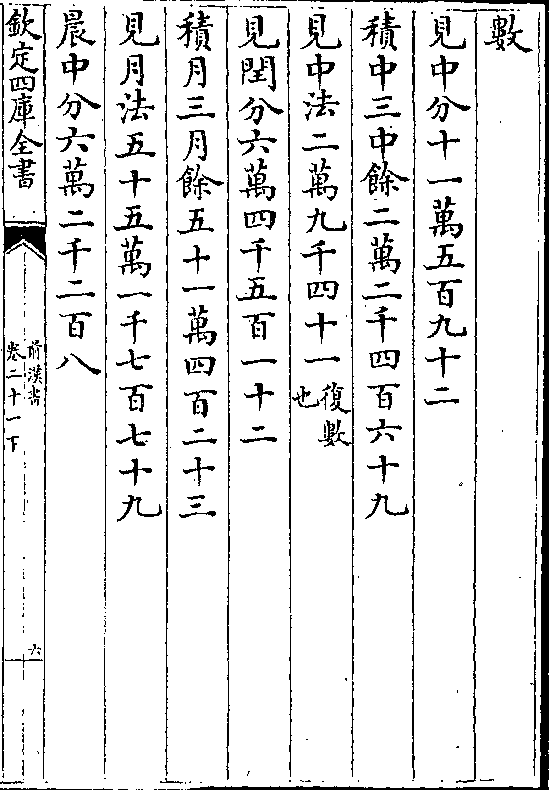 數
見中分十一萬五百九十二
積中三中餘二萬二千四百六十九
見中法二萬九千四十一復數也
見閏分六萬四千五百一十二
積月三月餘五十一萬四百二十三
見月法五十五萬一千七百七十九
晨中分六萬二千二百八
欽定四庫全書
前漢書
卷二十一下
六